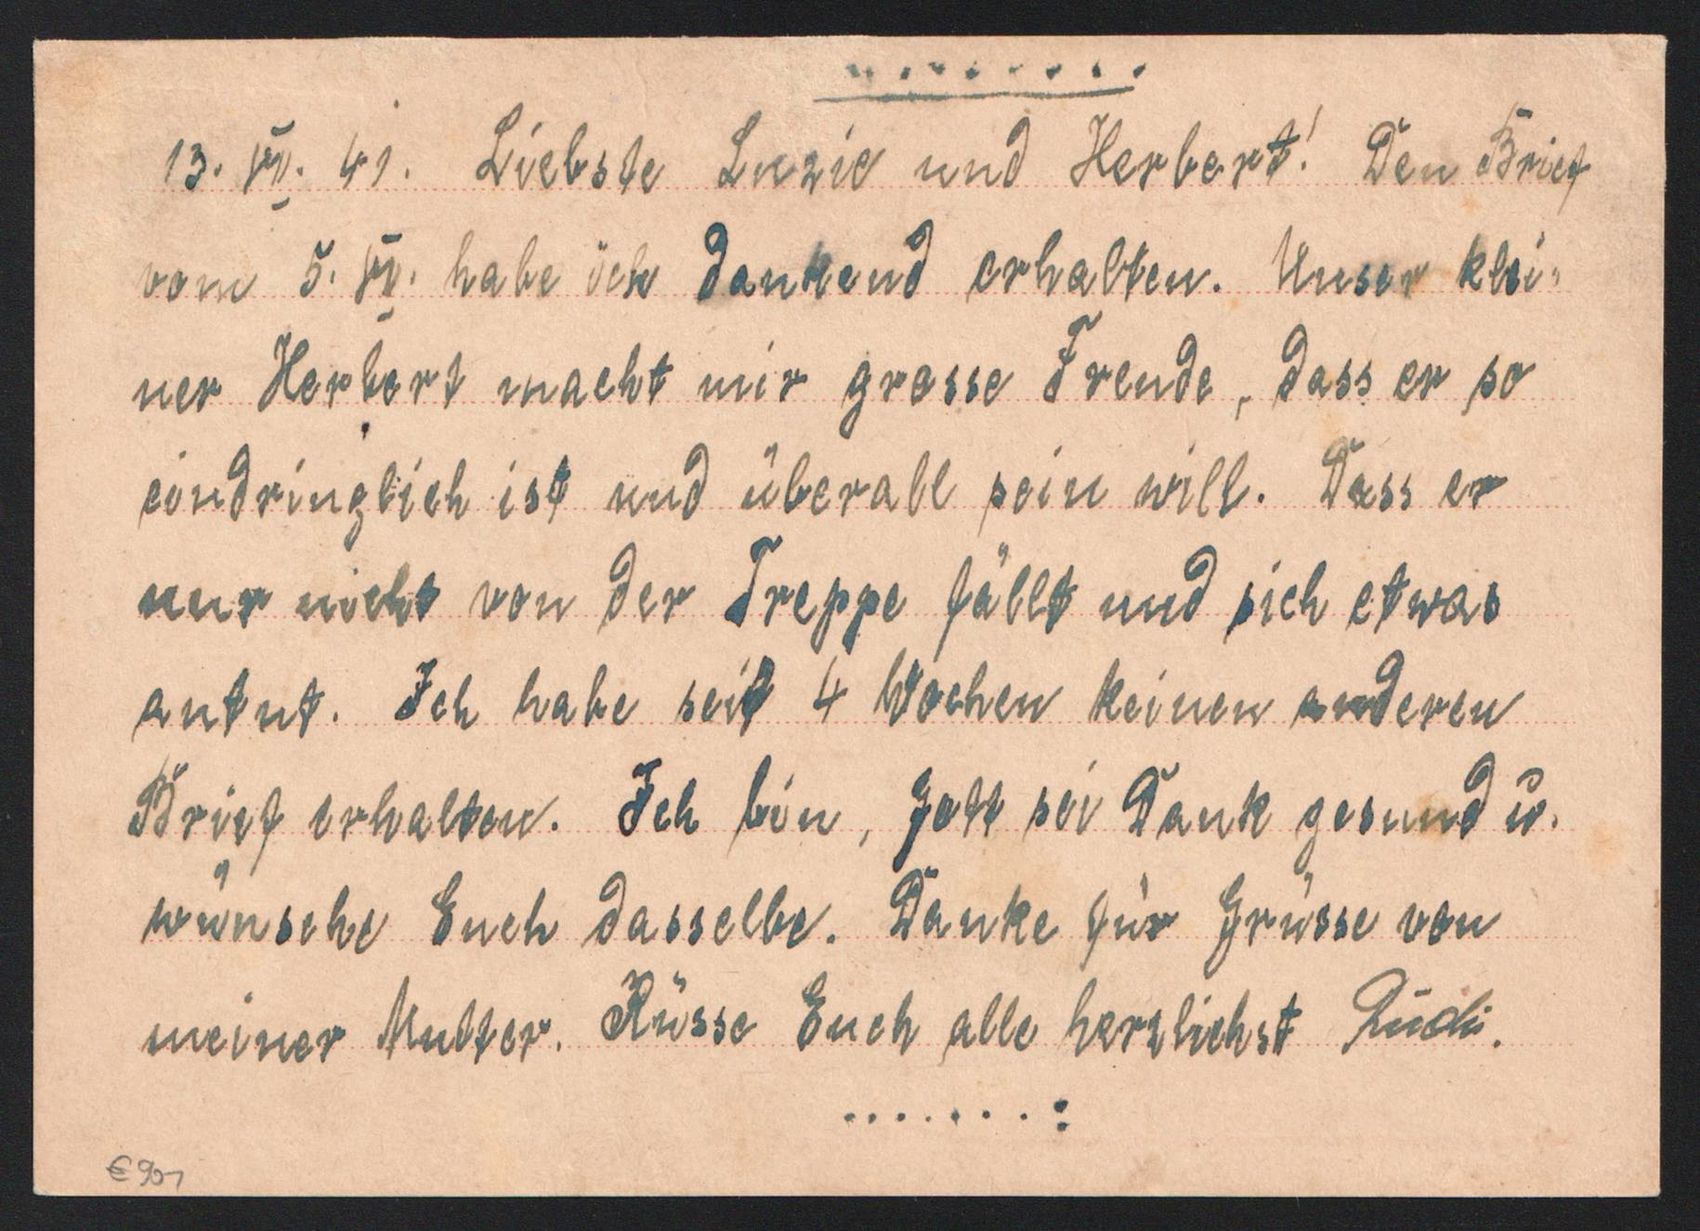 13. VI. 41. Liebste Luzie und Herbert! Den Brief
vom 5. VI. habe ich dankend erhalten. Unser klei-
ner Herbert macht mir grosse Freude, dass er so
eindringlich ist und überall sein will. Dass er
nur nicht von der Treppe fällt und sich etwas
antut. Ich habe seit 4 Wochen keinen anderen
Brief erhalten. Ich bin, Gott sei Dank gesund u.
wünsche Euch dasselbe. Danke für Grüsse von
meiner Mutter. Küsse Euch alle herzlichst Rudi.
€ 90,-